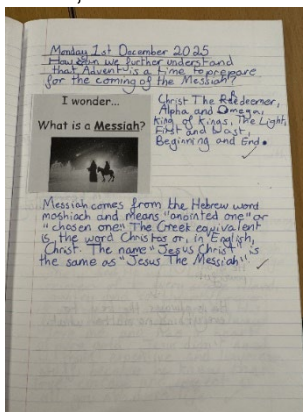 Monday 1st December 2025
How can we further understand
that Advent is a time to prepare
for the coming of the Messiah?
I wonder...
What is a Messiah?
Christ The Redeemer,
Alpha and Omega,
King of Kings, The Light,
First and Last,
Beginning and End.
Messiah comes from the Hebrew word
moshiach and means "anointed one" or
"chosen one" The Greek equivalent
is the word Christos or, in English,
Christ. The name "Jesus Christ" is
the same as "Jesus The Messiah"